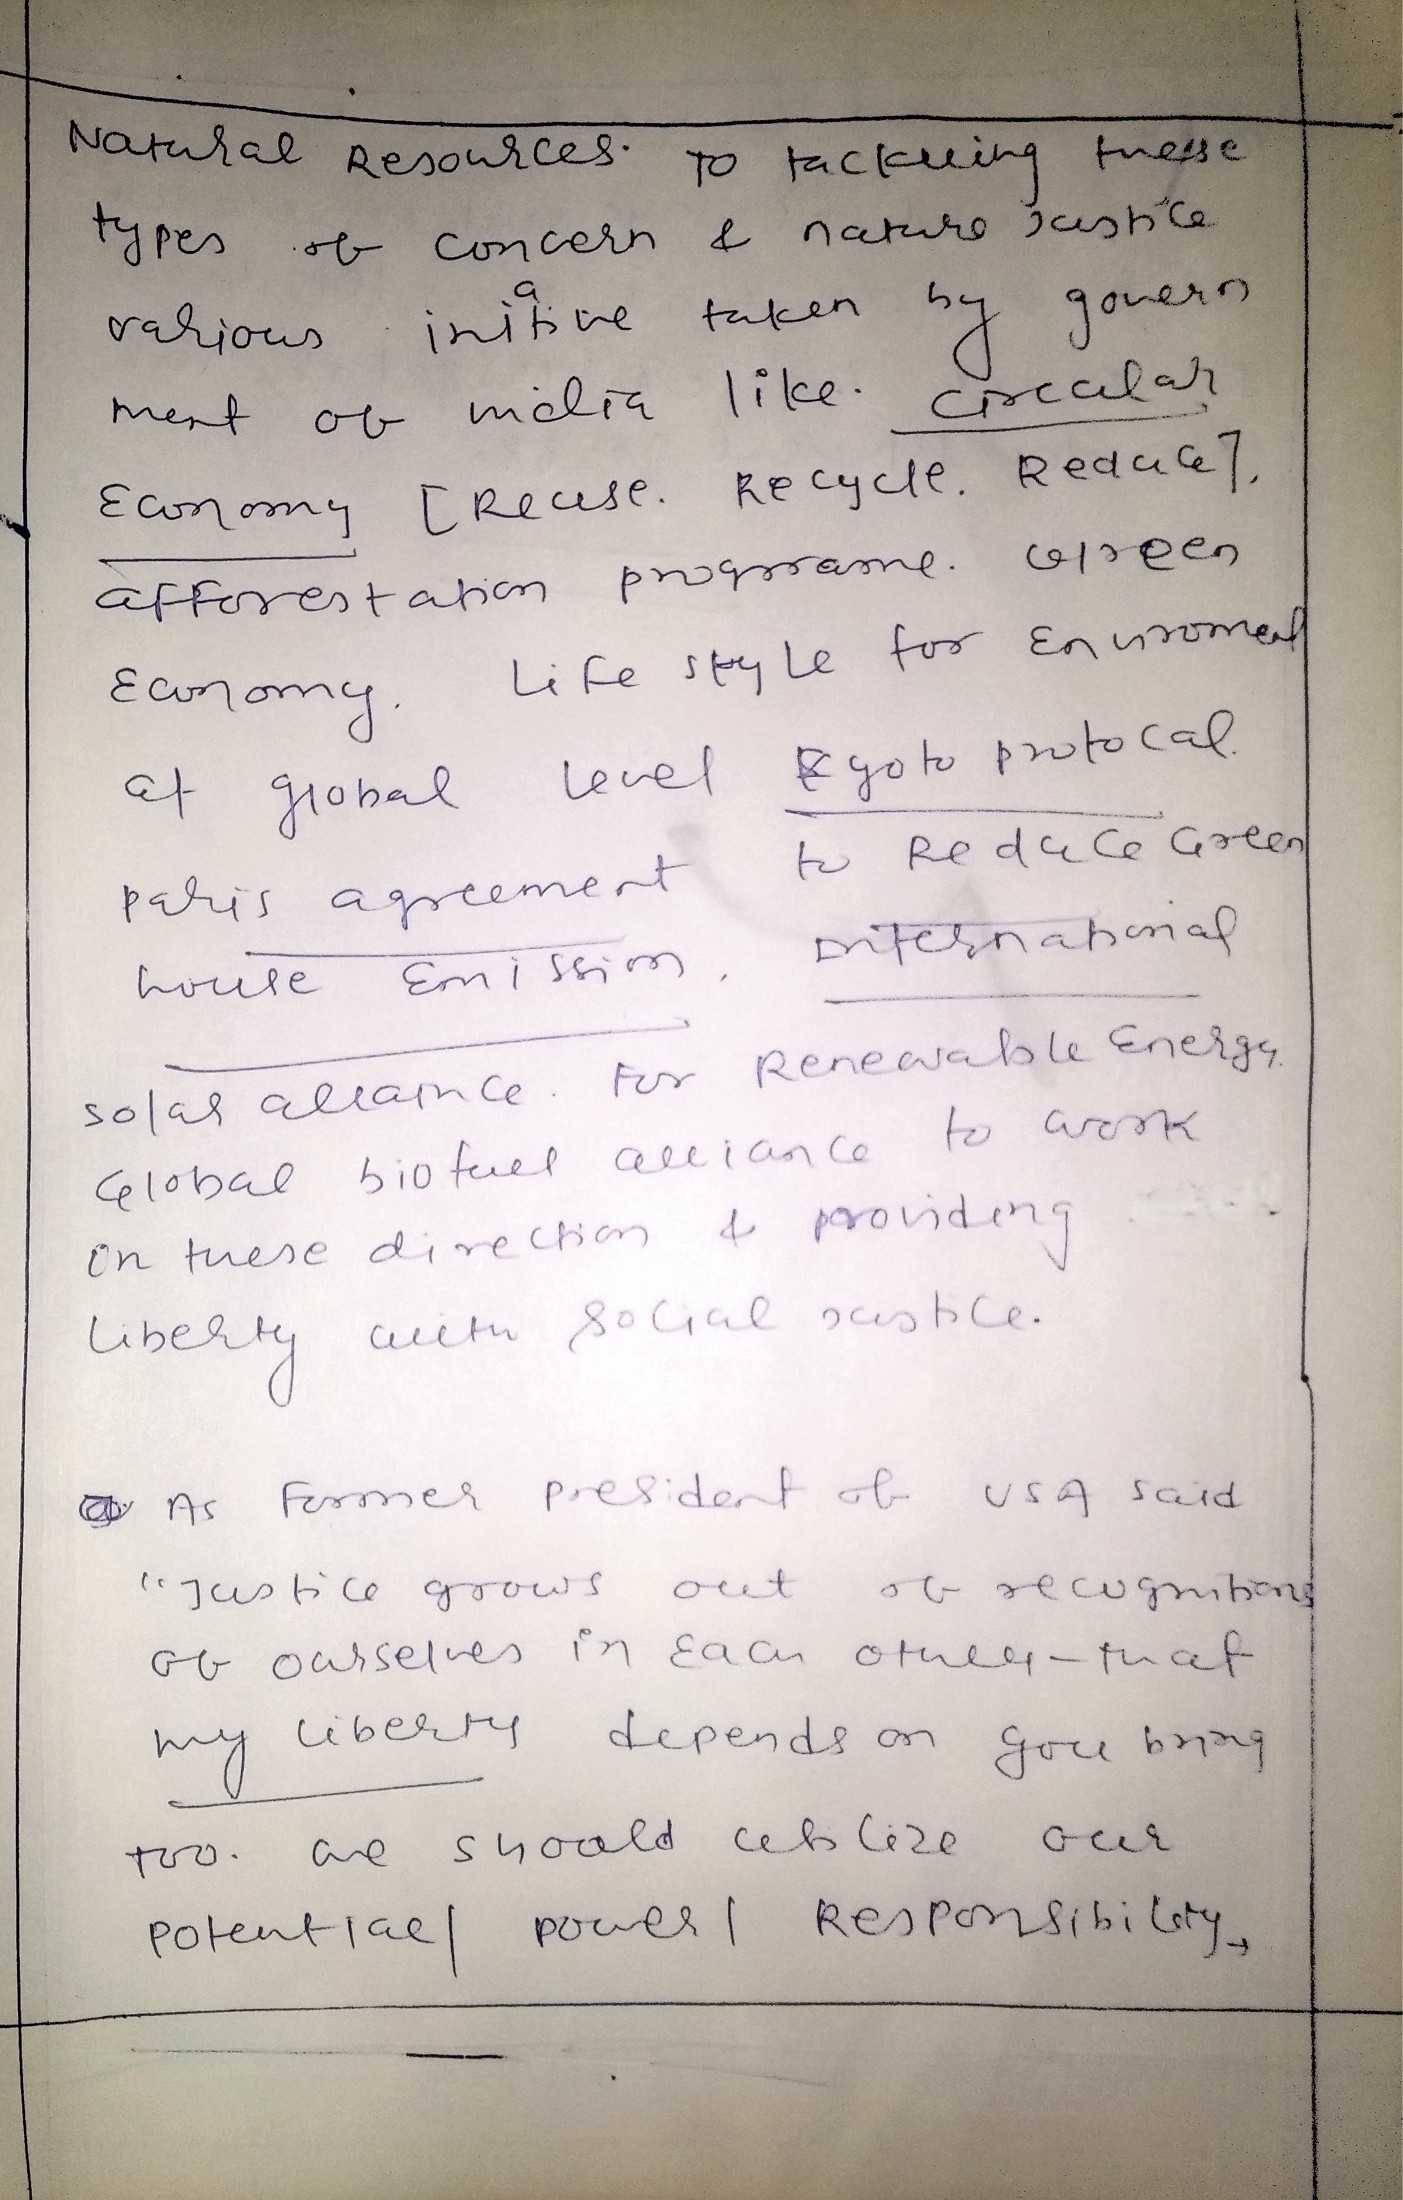 Natural Resources. To tackling these
types of concern & nature justice
various initiative taken by govern
ment of india like. circular
Economy [Reuse. Recycle. Reduce],
afforestation programe. Green
Economy. Life style for Enviroment
at global level Kyoto protocal.
paris agreement to Reduce Green
house Emission, International
solar allaince. For Renewable Energy.
Global biofuel alliance to work
on these direction & providing
liberty with Social justice.
As Former president of USA said
"Justice grows out of recognitions
of ourselves in Each other - that
my liberty depends on you bring
too. we should utilize our
potential / power / Responsibility,